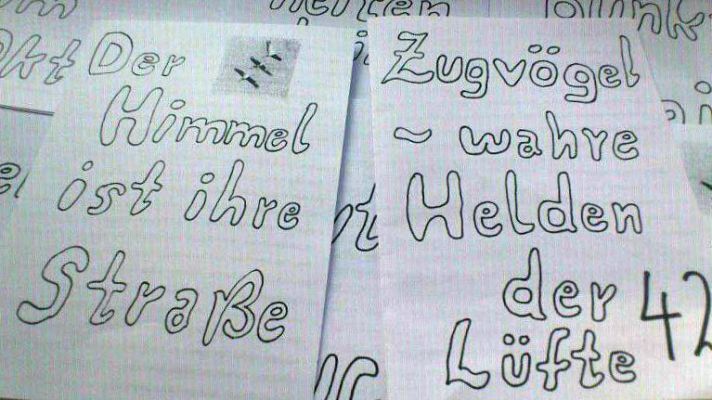 Der
Himmel
ist ihre
Straße
Zugvögel
~ wahre
Helden
der
Lüfte
42